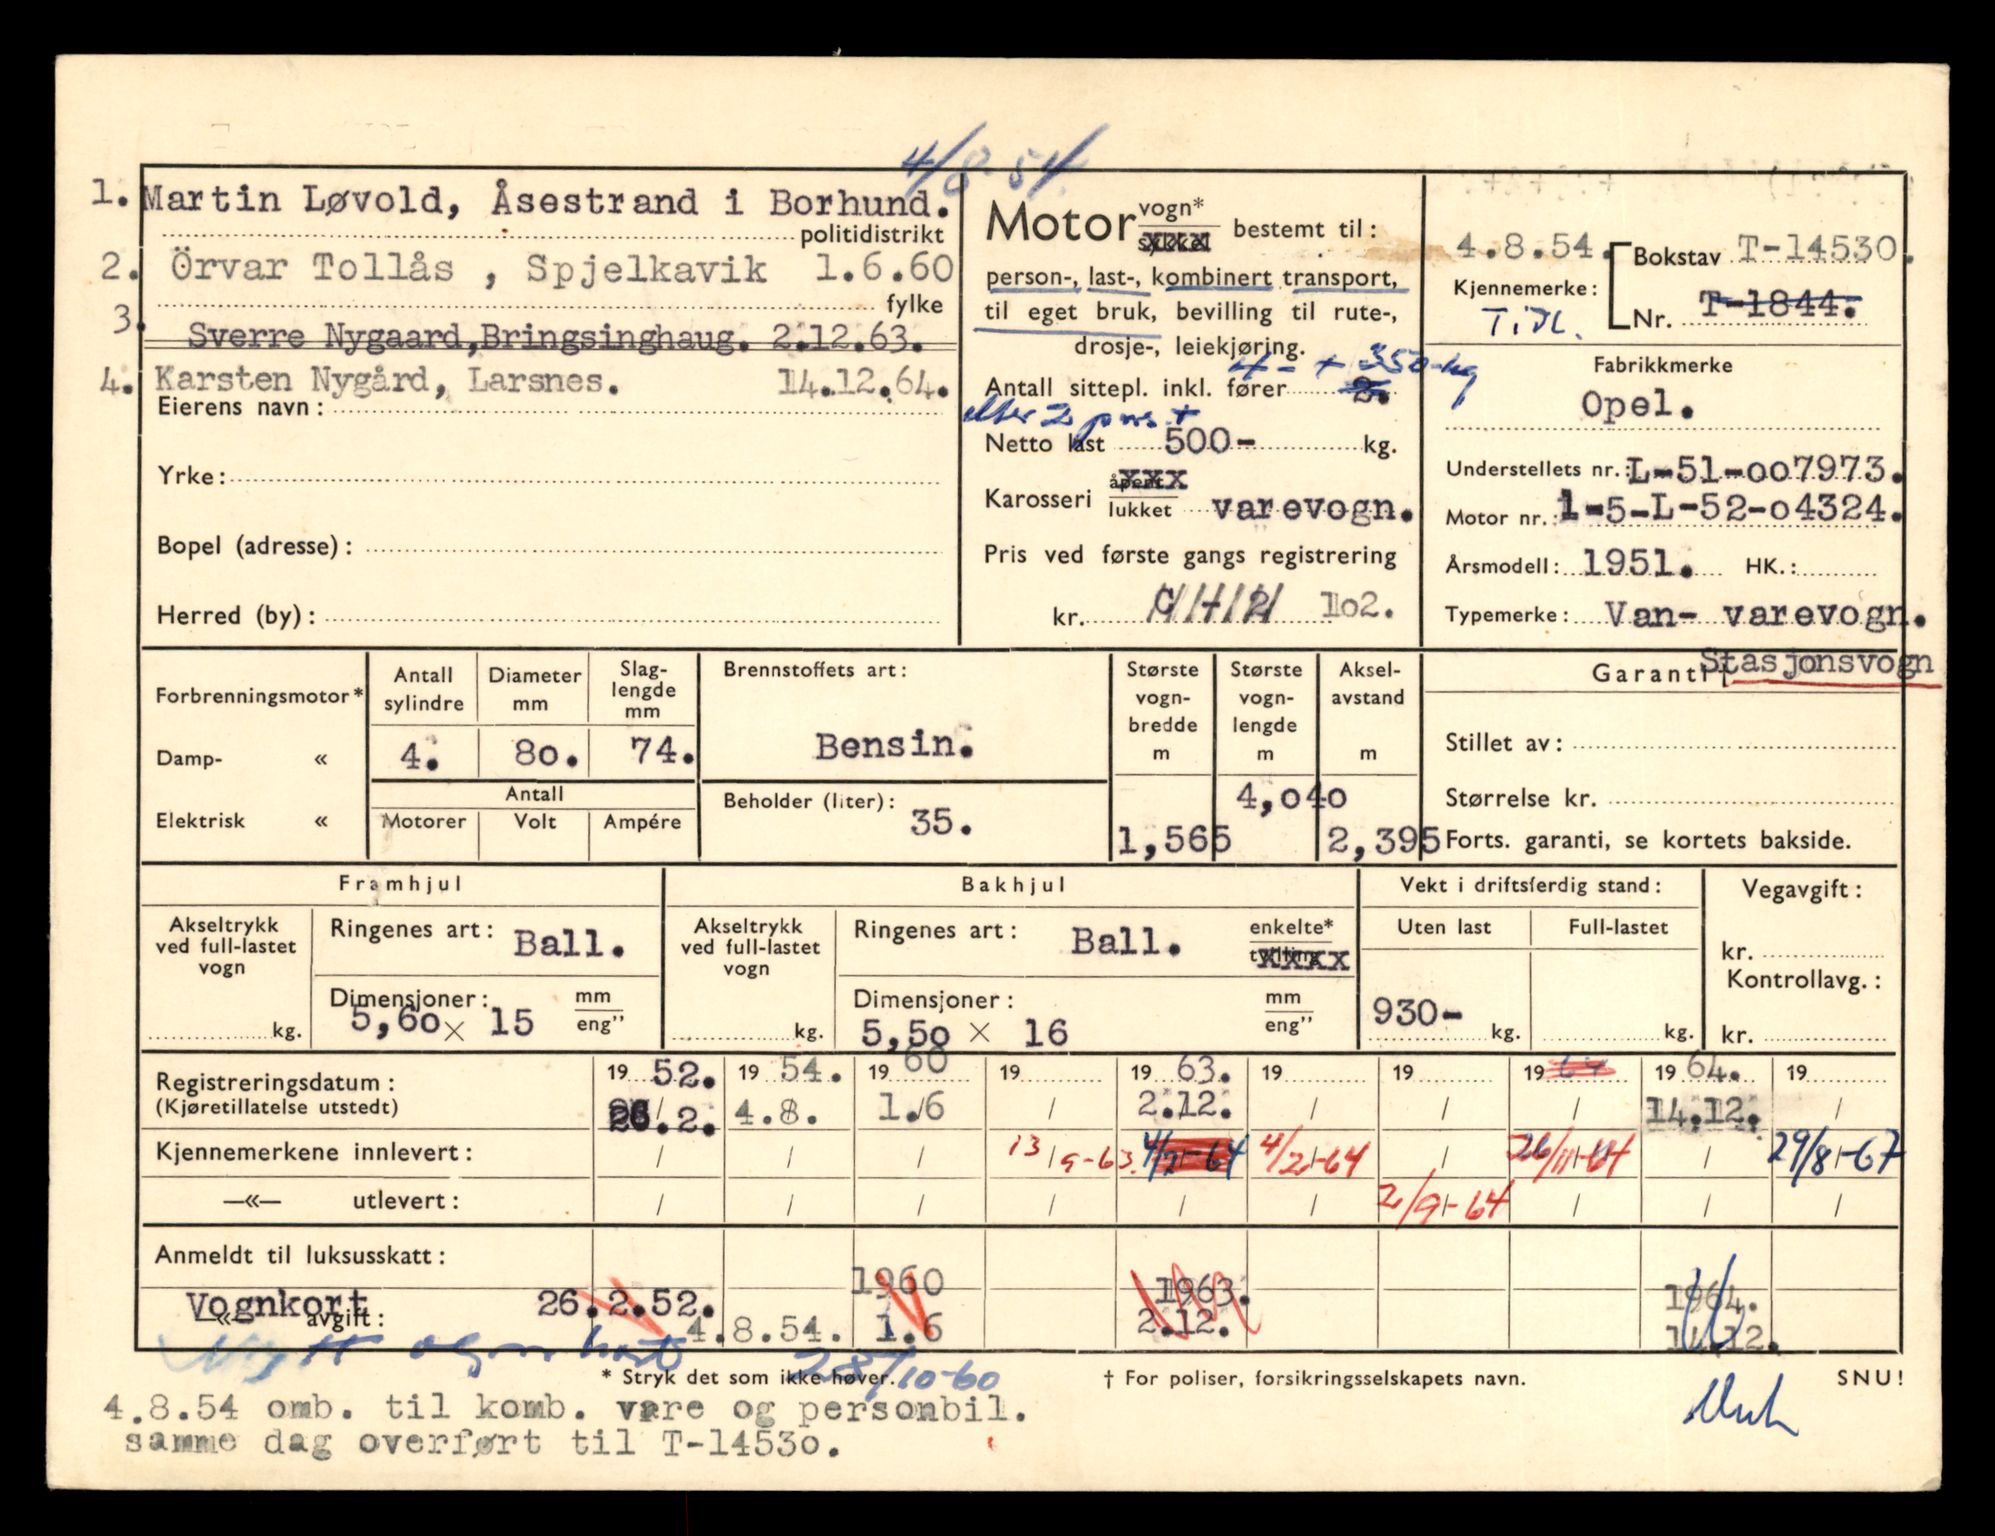 4/8-54.
1. Martin Løvold, Åsestrand i Borhund.
politidistrikt
2. Örvar Tollås , Spjelkavik 1.6.60
fylke
3. Sverre Nygaard,Bringsinghaug. 2.12.63.
4. Karsten Nygård, Larsnes. 14.12.64.
Eierens navn:
Yrke:
Bopel (adresse):
Herred (by):
Motor vogn* bestemt til:
person-, last-, kombinert transport,
til eget bruk, bevilling til rute-,
drosje-, leiekjøring.
4 - + 350-kg
Antall sittepl. inkl. fører 2.
eller 2 pers +
Netto last 500- kg.
xxx
åpent
Karosseri lukket varevogn.
Pris ved første gangs registrering
kr. 102.
4.8.54. Bokstav T-14530.
Kjennemerke:
Tidl. Nr. T-1844.
Fabrikkmerke
Opel.
Understellets nr.: L-51-007973.
Motor nr.: 1-5-L-52-04324.
Årsmodell: 1951. HK.:
Typemerke: Van- varevogn.
Stasjonsvogn
Garanti
Stillet av:
Størrelse kr.
Forts. garanti, se kortets bakside.
Forbrenningsmotor*
Damp- «
Elektrisk «
Antall sylindre
4.
Diameter mm
80.
Slag-
lengde
mm
74.
Antall
Motorer Volt Ampére
Brennstoffets art:
Bensin.
Beholder (liter):
35.
Største
vogn-
bredde
m
1,565
Største
vogn-
lengde
m
4,040
Aksel-
avstand
m
2,395
Framhjul
Akseltrykk
ved full-lastet
vogn
kg.
Ringenes art: Ball.
Dimensjoner: mm
5,60 x 15 eng”
Bakhjul
Akseltrykk
ved full-lastet
vogn
kg.
Ringenes art: Ball. enkelte*
xxxx
Dimensjoner: mm
5,50 x 16 eng”
Vekt i driftsferdig stand:
Uten last Full-lastet
930- kg. kg.
Vegavgift:
kr.
Kontrollavg.:
kr.
Registreringsdatum: 19 52. 19 54. 19 60 19 19 63. 19 19 19 64 19 64. 19
(Kjøretillatelse utstedt) 26.2. 4.8. 1.6 / 2.12. / / / 14.12. /
Kjennemerkene innlevert: / / / 13/9-63. 4/2-64 4/2-64 / 26/11-64 / 29/8-67
—«— utlevert: / / / / / / 2/9-64 / / /
Anmeldt til luksusskatt:
1960 1963. 1964.
Vognkort 26.2.52.
—«— avgift: 4.8.54. 1.6 2.12. 14.12.
Nytt vognkort 28/10-60
* Stryk det som ikke høver. † For poliser, forsikringsselskapets navn. SNU!
4.8.54 omb. til komb. vare og personbil.
samme dag overført til T-14530.